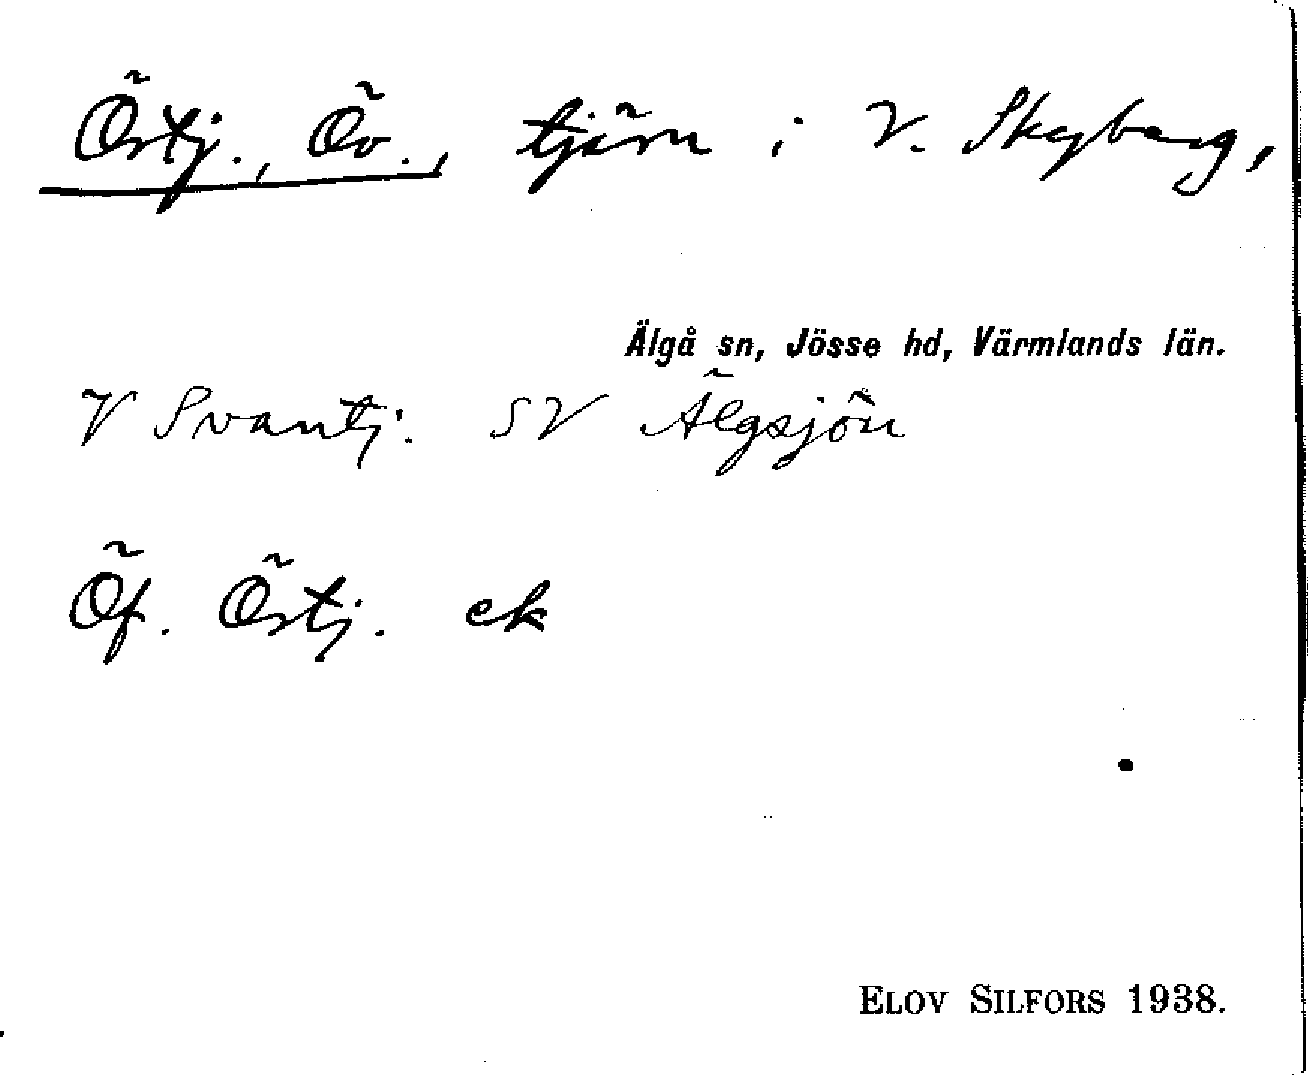 Örtj., Öv., tjärn i V. Skyberg,
Älgå sn, Jösse hd, Värmlands län.
V Svantj. SV Älgsjön
Öf. Örtj. ek
ELOV SILFORS 1938.